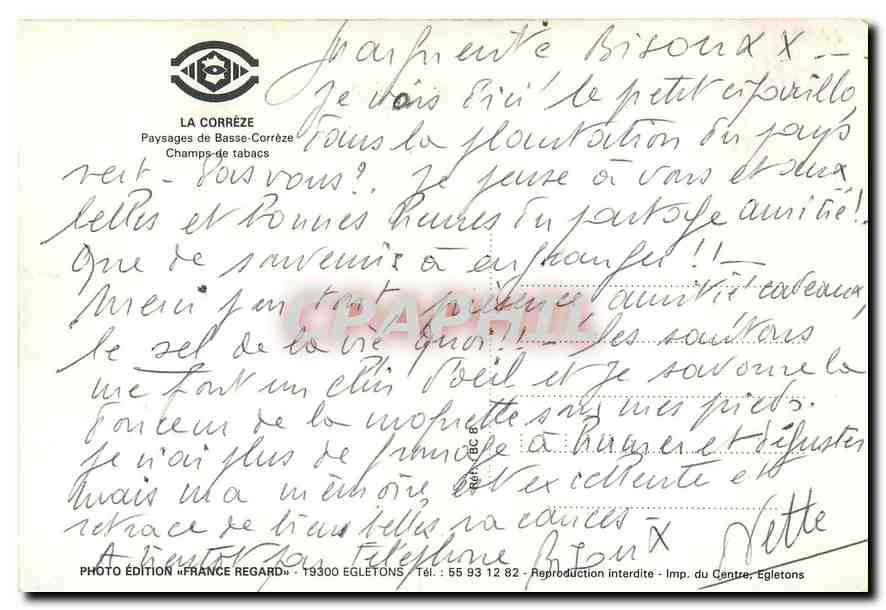 Marguerite Bisouxxx --
LA CORRÈZE
Paysages de Basse-Corrèze
Champs de tabacs
Je vois d'ici le petit cigarillo,
dans la plantation du pays
vert - Pas vous? Je pense à vous et aux
belles et bonnes heures du partage amitié!
Que de souvenirs à engranger!! -
Merci pour tout, présence amitié cadeaux,
le sel de la vie quoi!! - les santons
me font un clin d'oeil et je savoure la
douceur de la moquette sous mes pieds.
Je n'ai plus de fromage à humer et déguster
mais ma mémoire est excellente et
retrace de bien belles vacances -
A bientôt par téléphone Bisoux
Nette
CPAPHIL
Réf. : BC 8
PHOTO ÉDITION «FRANCE REGARD» - 19300 EGLETONS Tél. : 55 93 12 82 - Reproduction interdite - Imp. du Centre, Egletons